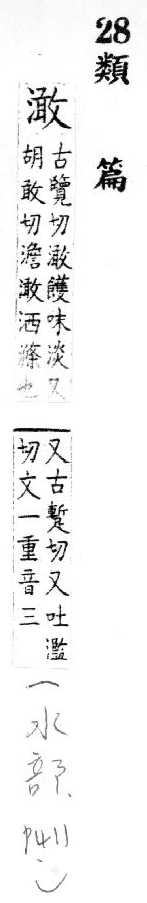 28類篇
澉 古覽切澉䕶味淡又
胡敢切澹澉洒滌也
又古蹔切又吐濫
切文一重音三
（水部、P411）